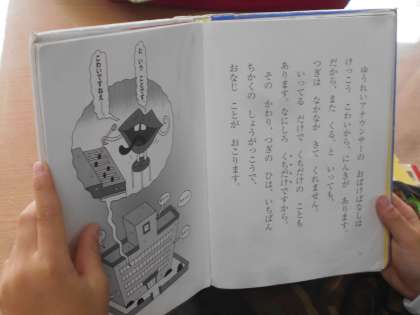 ゆうれいアナウンサーの おばけばなしは
けっこう こわいから、にんきが あります。
だから、また くる、と いっても、
つぎは なかなか きて くれません。
いってる だけで くちだけの ことも
あります。なにしろ くちだけですから。
その かわり、つぎの ひは、いちばん
ちかくの しょうがっこうで、
おなじ ことが おこります。
と いう ことです。
こわいですねえ